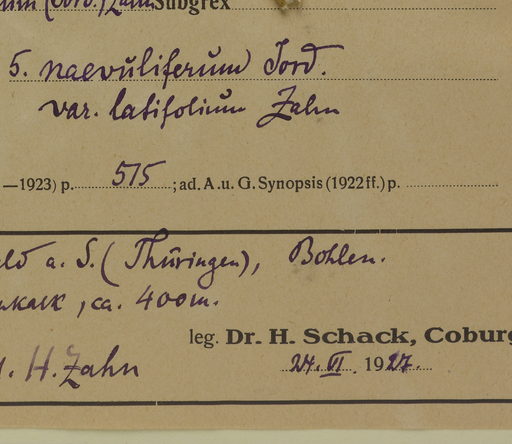 (Jord.) Zahn Subgrex
5. naevuliferum Jord.
var. latifolium Zahn
—1923) p. 575 ; ad. A. u. G. Synopsis (1922 ff.) p.
a. S. (Thüringen), Bohlen.
, ca. 400 m.
leg. Dr. H. Schack, Coburg
H. Zahn
24. VI. 1927.